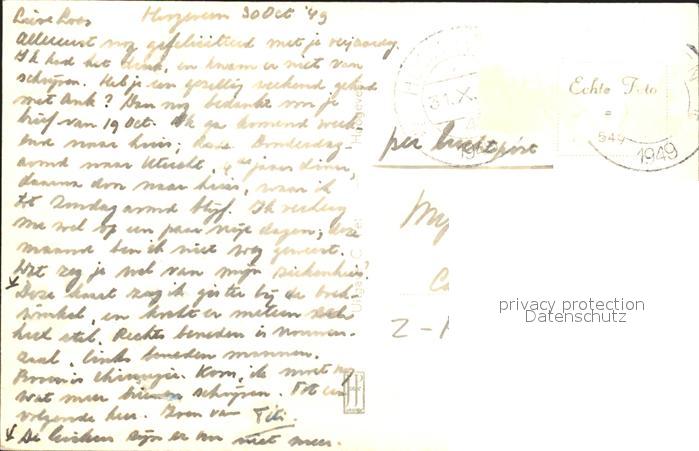 Lieve Loes Hoogeveen 30 Oct '49
Allereerst nog gefeliciteerd met je verjaardag.
Ik had het druk, en kwam er niet van
schrijven. Heb je een gezellig weekend gehad
met Ank? Dan nog bedankt voor je
brief van 19 Oct. Ik ga komend week
end naar huis; Donderdag-
avond naar Utrecht, jaars diner,
daarna door naar huis, waar ik
tot Zondag avond blijf. Ik verheug
me wel op een paar vrije dagen; deze
maand ben ik niet weg geweest.
Wat zeg je wel van mijn ziekenhuis?
Deze kaart zag ik gister bij de boek
winkel, en kocht er meteen
heel stel. Rechts beneden is vrouwen-
zaal, links beneden mannen.
Boven is chirurgie. Kom, ik moet nog
wat meer brieven schrijven. Tot een
volgende keer. Zoen van Titi.
De luiken zijn er nu niet meer.
Echte Foto
31.X
1949
per luchtpost
My
Ca
Z-
Uitgave C.
Hoogeveen
privacy protection
Datenschutz